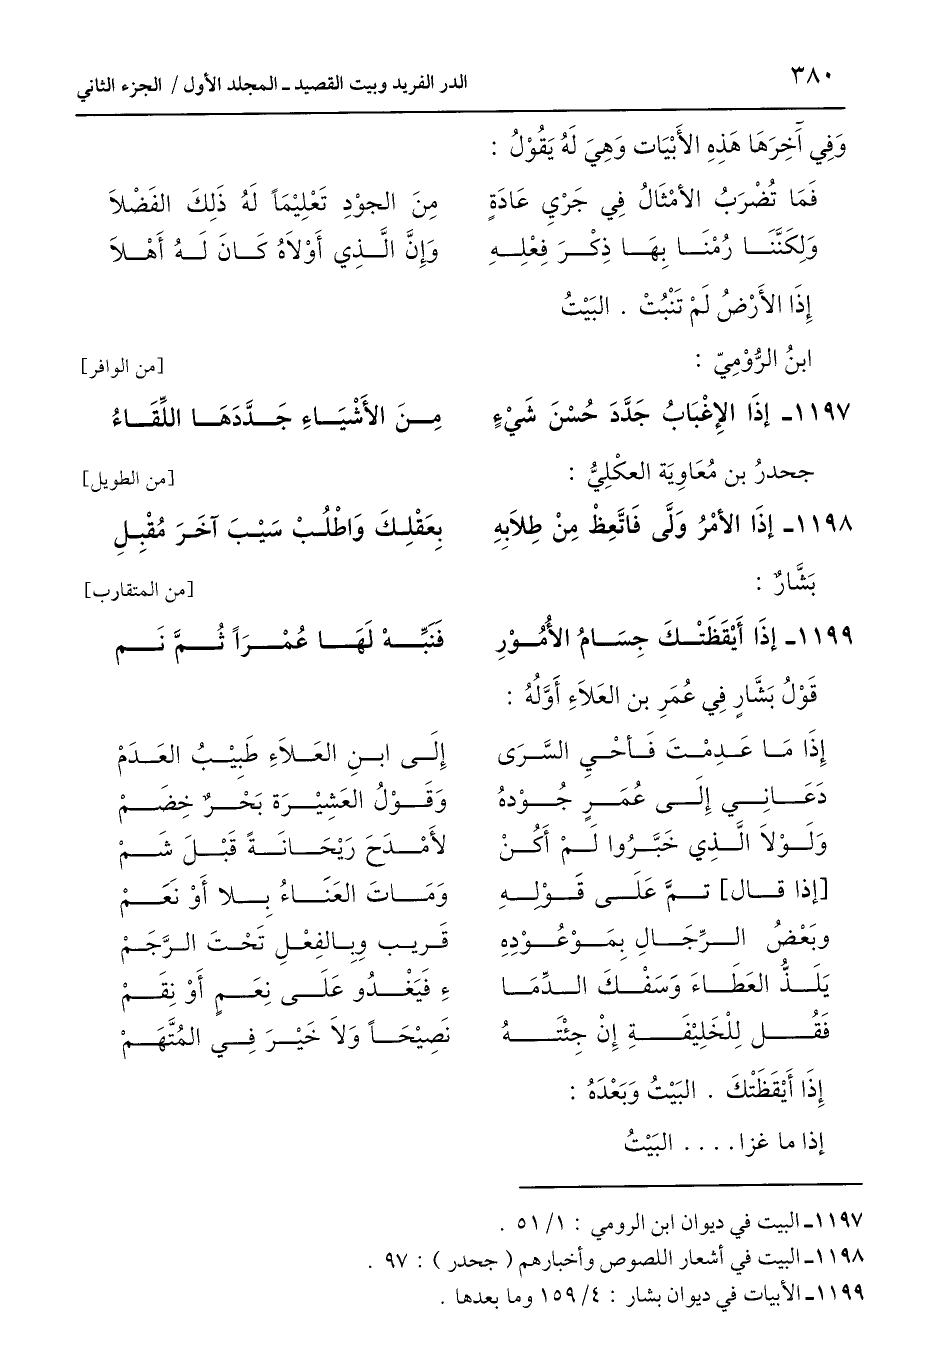 ٣٨٠ الدر الفريد وبيت القصيد ـ المجلد الأول / الجزء الثاني
وَفِي آخِرَهَا هَذِهِ الأَبْيَات وَهِيَ لَهُ يَقُوْلُ :
فَمَا تُضْرَبُ الأَمْثَالُ فِي جَرْيِ عَادَةٍ مِنَ الجوْدِ تَعْلِيْمَاً لَهُ ذَلِكَ الفَضْلاَ
وَلِكَنَّنَا رُمْنَا بِهَا ذِكْرَ فِعْلِهِ وَإِنَّ الَّذِي أَوْلاَهُ كَانَ لَهُ أَهْلاَ
إِذَا الأَرْضُ لَمْ تَنْبُتْ . البَيْتُ
ابنُ الرُّوْمِيّ : [من الوافر]
١١٩٧ـ إِذَا الإِغْبَابُ جَدَّدَ حُسْنَ شَيْءٍ مِنَ الأَشْيَاءِ جَدَّدَهَا اللِّقَاءُ
جحدرُ بن مُعَاوِيَة العكْلِيُّ : [من الطويل]
١١٩٨ـ إِذَا الأَمْرُ وَلَّى فَاتَّعِظْ مِنْ طِلاَبِهِ بِعَقْلِكَ وَاطْلُبْ سَيْبَ آخَرَ مُقْبِلِ
بَشَّارٌ : [من المتقارب]
١١٩٩ـ إِذَا أَيْقَظَتْكَ جِسَامُ الأُمُوْرِ فَنَبِّهْ لَهَا عُمْرَاً ثُمَّ نَمِ
قَوْلُ بَشَّارٍ فِي عُمَرِ بن العَلاَءِ أَوَّلُهُ :
إِذَا مَا عَدِمْتَ فَأحْيِ السَّرَى إِلَى ابنِ العَلاَءِ طَبِيْبُ العَدَمْ
دَعَانِي إِلَى عُمَرٍ جُوْدهُ وَقَوْلُ العَشِيْرَة بَحْرٌ خِضَمْ
وَلَوْلاَ الَّذِي خَبَّرُوا لَمْ أَكُنْ لأَمْدَحَ رَيْحَانَةً قَبْلَ شَمْ
[إذا قال] تمَّ عَلَى قَوْلِهِ وَمَاتَ العَنَاءُ بِلا أَوْ نَعَمْ
وبَعْضُ الرِّجَالِ بِمَوْعُوْدِهِ قَريب وبِالفِعْلِ تَحْتَ الرَّجَمْ
يَلَذُّ العَطَاءَ وَسَفْكَ الدِّمَا ءِ فَيَغْدُو عَلَى نِعَمٍ أَوْ نِقَمْ
فَقُل لِلْخَلِيْفَةِ إِنْ جِئْتَهُ نَصِيْحَاً وَلاَ خَيْرَ فِي المُتَّهَمْ
إِذَا أَيْقَظَتْكَ . البَيْتُ وَبَعْدَهُ :
إذا ما غزا.... البَيْتُ
١١٩٧ـ البيت في ديوان ابن الرومي : ١/ ٥١ .
١١٩٨ـ البيت في أشعار اللصوص وأخبارهم ( جحدر ) : ٩٧ .
١١٩٩ـ الأبيات في ديوان بشار : ٤/ ١٥٩ وما بعدها .